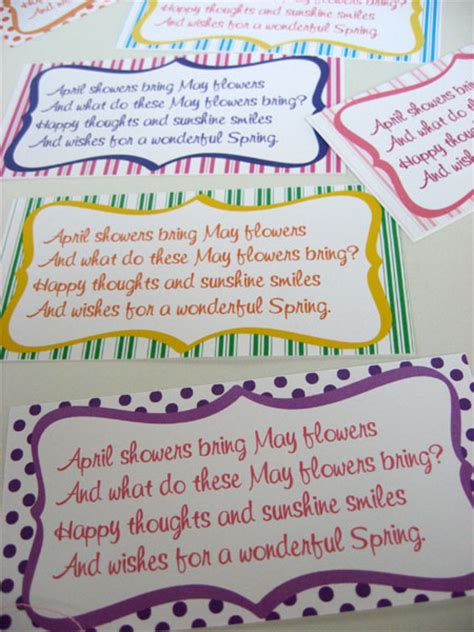 Happy thoughts and sunshine smiles
And wishes for a wonderful Spring.
April showers bring May flowers
And what do these May flowers bring?
Happy thoughts and sunshine smiles
And wishes for a wonderful Spring.
April showers
And what do
Happy
And wishes
April showers bring May flowers
And what do these May flowers bring?
Happy thoughts and sunshine smiles
And wishes for a wonderful Spring.
April showers bring May flowers
And what do these May flowers bring?
Happy thoughts and sunshine smiles
And wishes for a wonderful Spring.